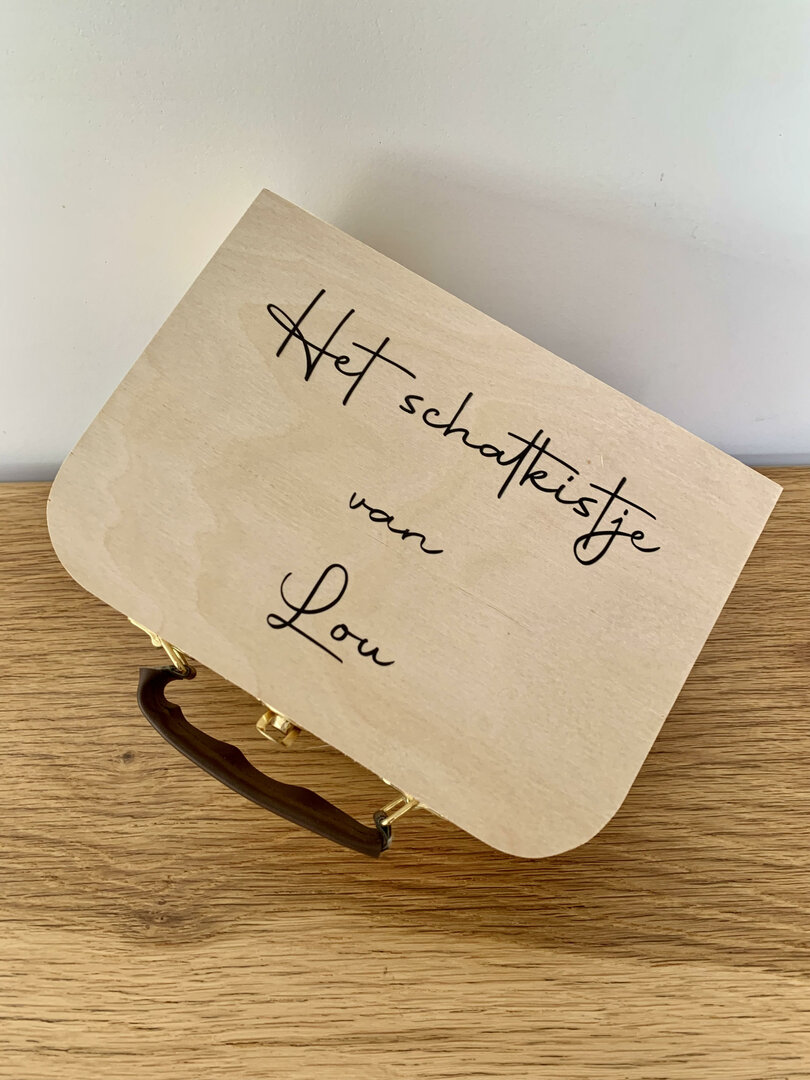 Het schatkistje
van
Lou